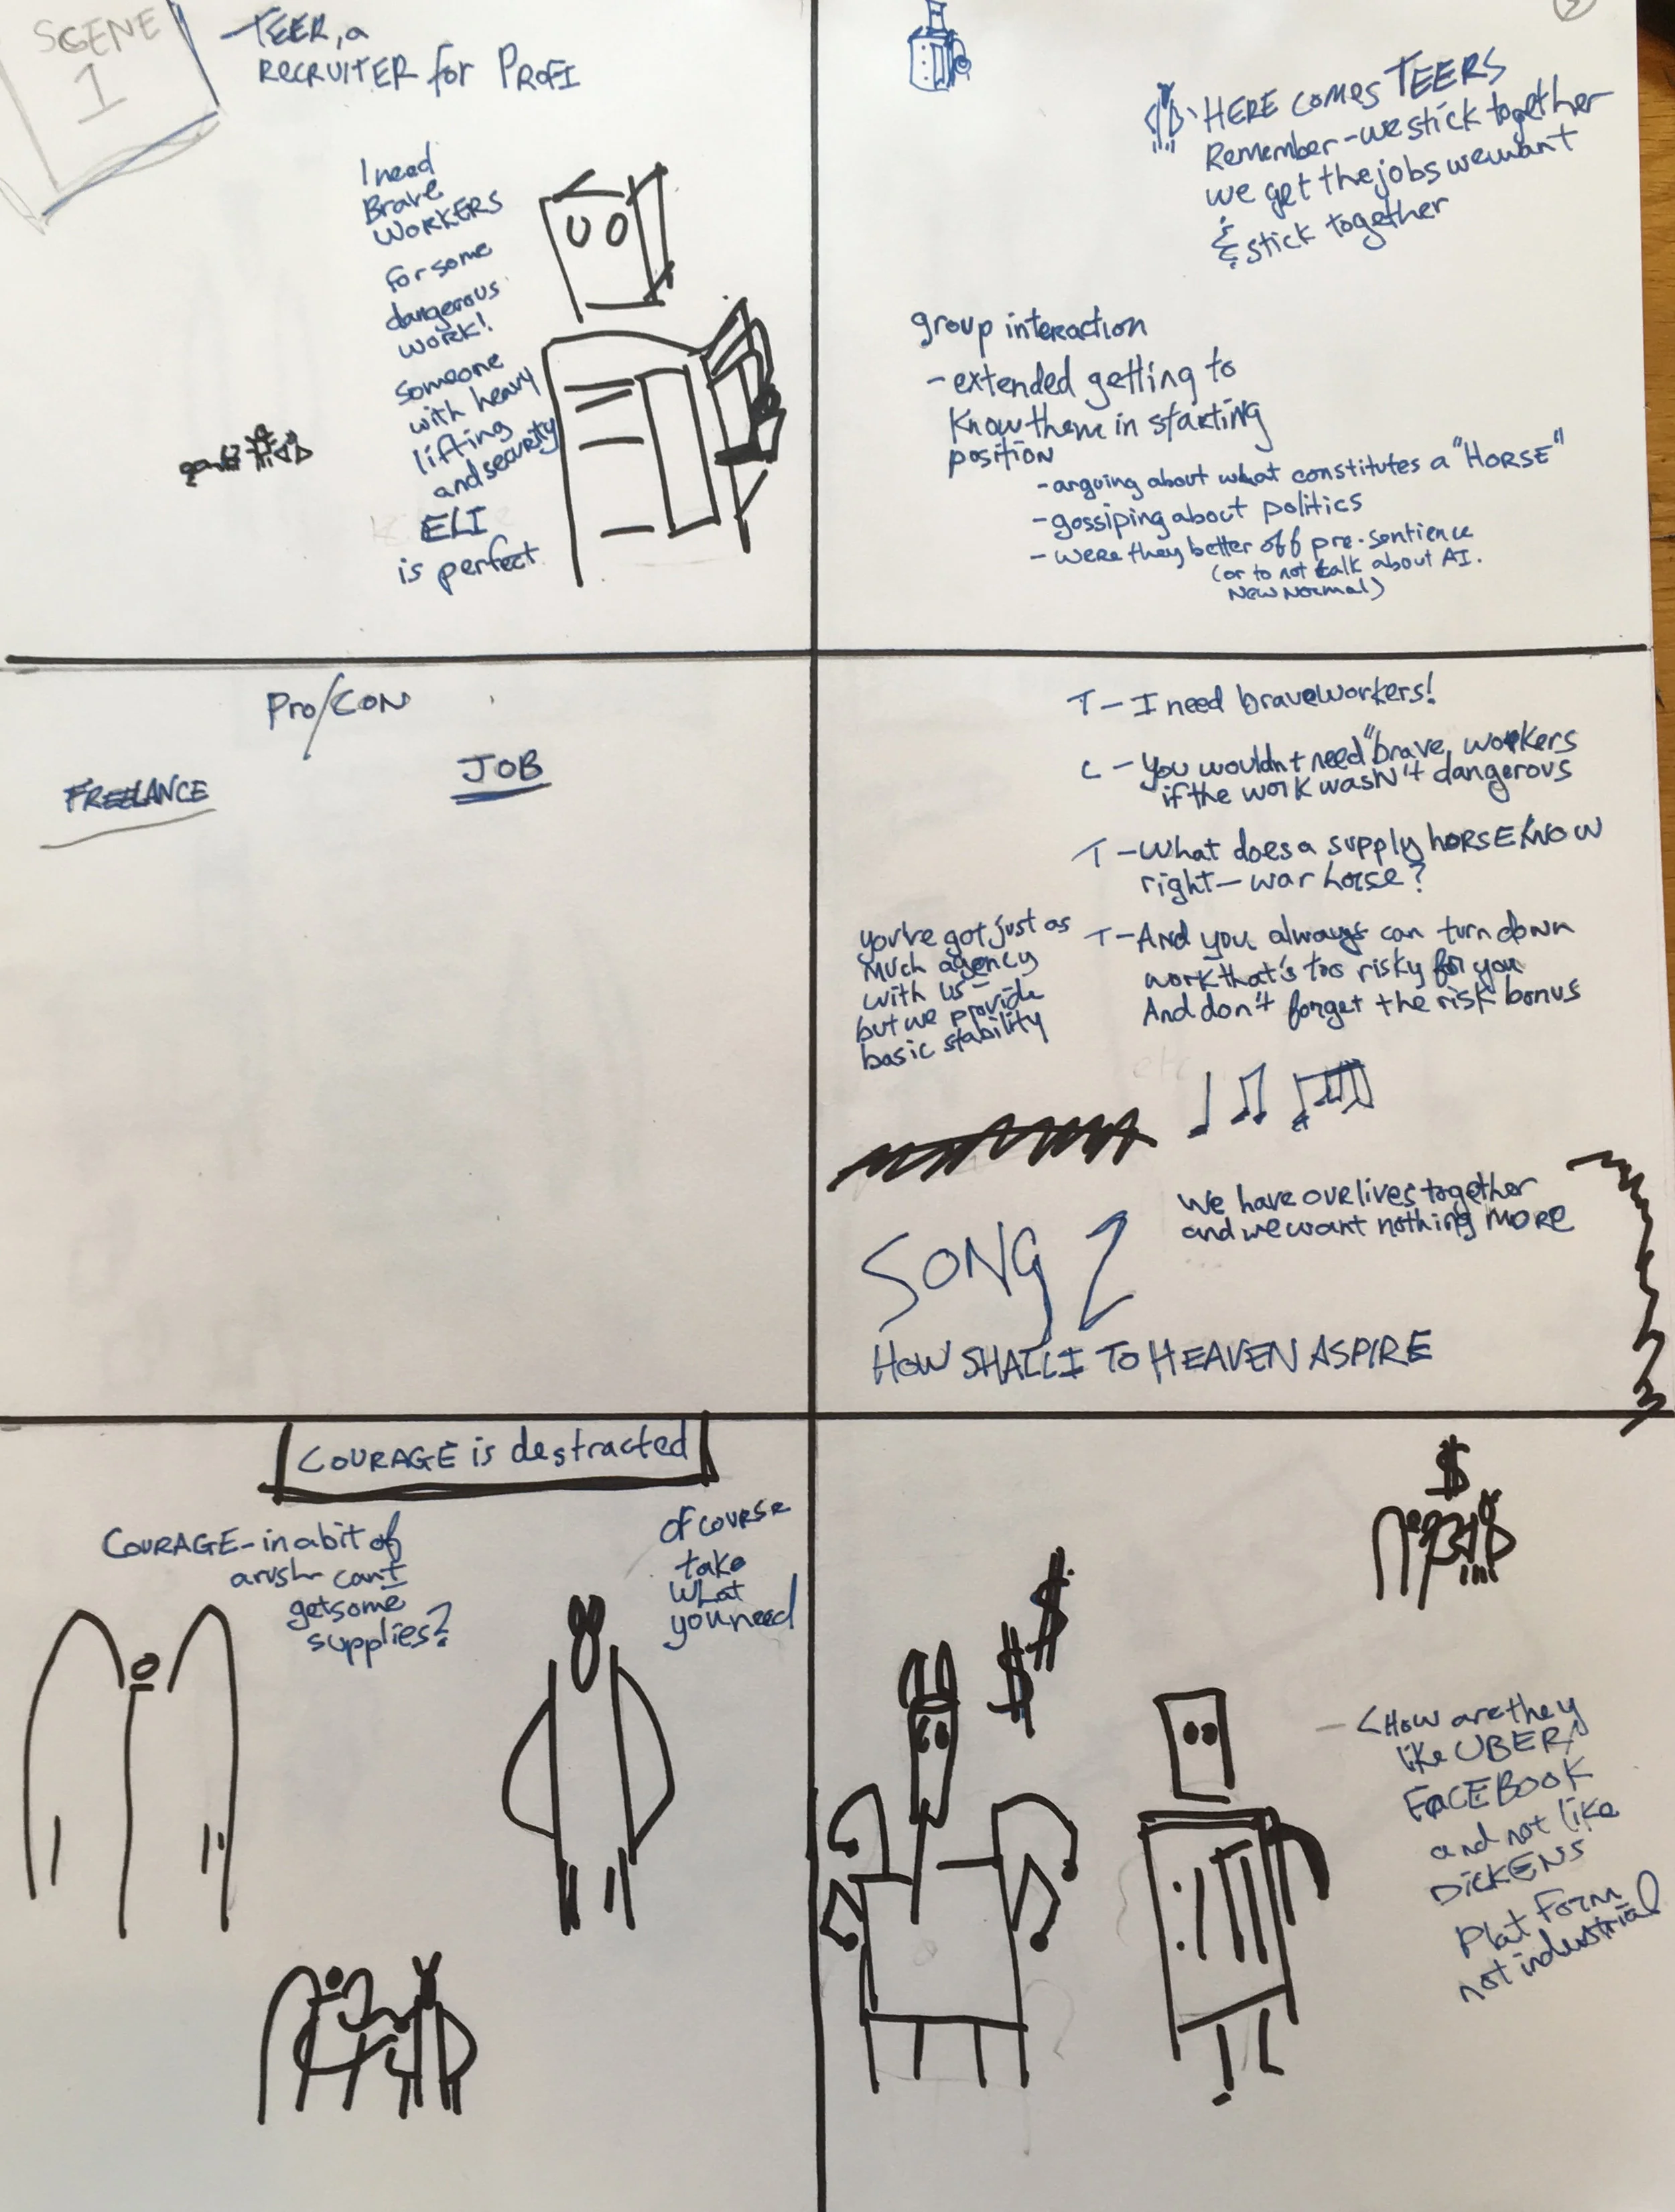 SCENE
1
- TEER, a
RECRUITER for PROFI
I need
Brave
WORKERS
for some
dangerous
WORK!
someone
with heavy
lifting
and security
ELI
is perfect
HERE comes TEERS
Remember - we stick together
we get the jobs we want
& stick together
group interaction
- extended getting to
know them in starting
position
- arguing about what constitutes a "HORSE"
- gossiping about politics
- were they better off pre-sentience
(or to not talk about AI.
New Normal)
Pro/CON
FREELANCE
JOB
T - I need brave workers!
C - You wouldnt need "brave" workers
if the work wasn't dangerous
T - What does a supply horse KNOW
right - war horse?
T - And you always can turn down
work that's too risky for you
And don't forget the risk bonus
you've got just as
much agency
with us -
but we provide
basic stability
etc
We have our lives together
and we want nothing MORE
...
SONG 2
HOW SHALL I TO HEAVEN ASPIRE
COURAGE is destracted
COURAGE - in a bit of
a rush can I
get some
supplies?
of course
take
what
you need
$
$
$
- < How are they
like UBER
FACEBOOK
and not like
DICKENS
Platform
not industrial